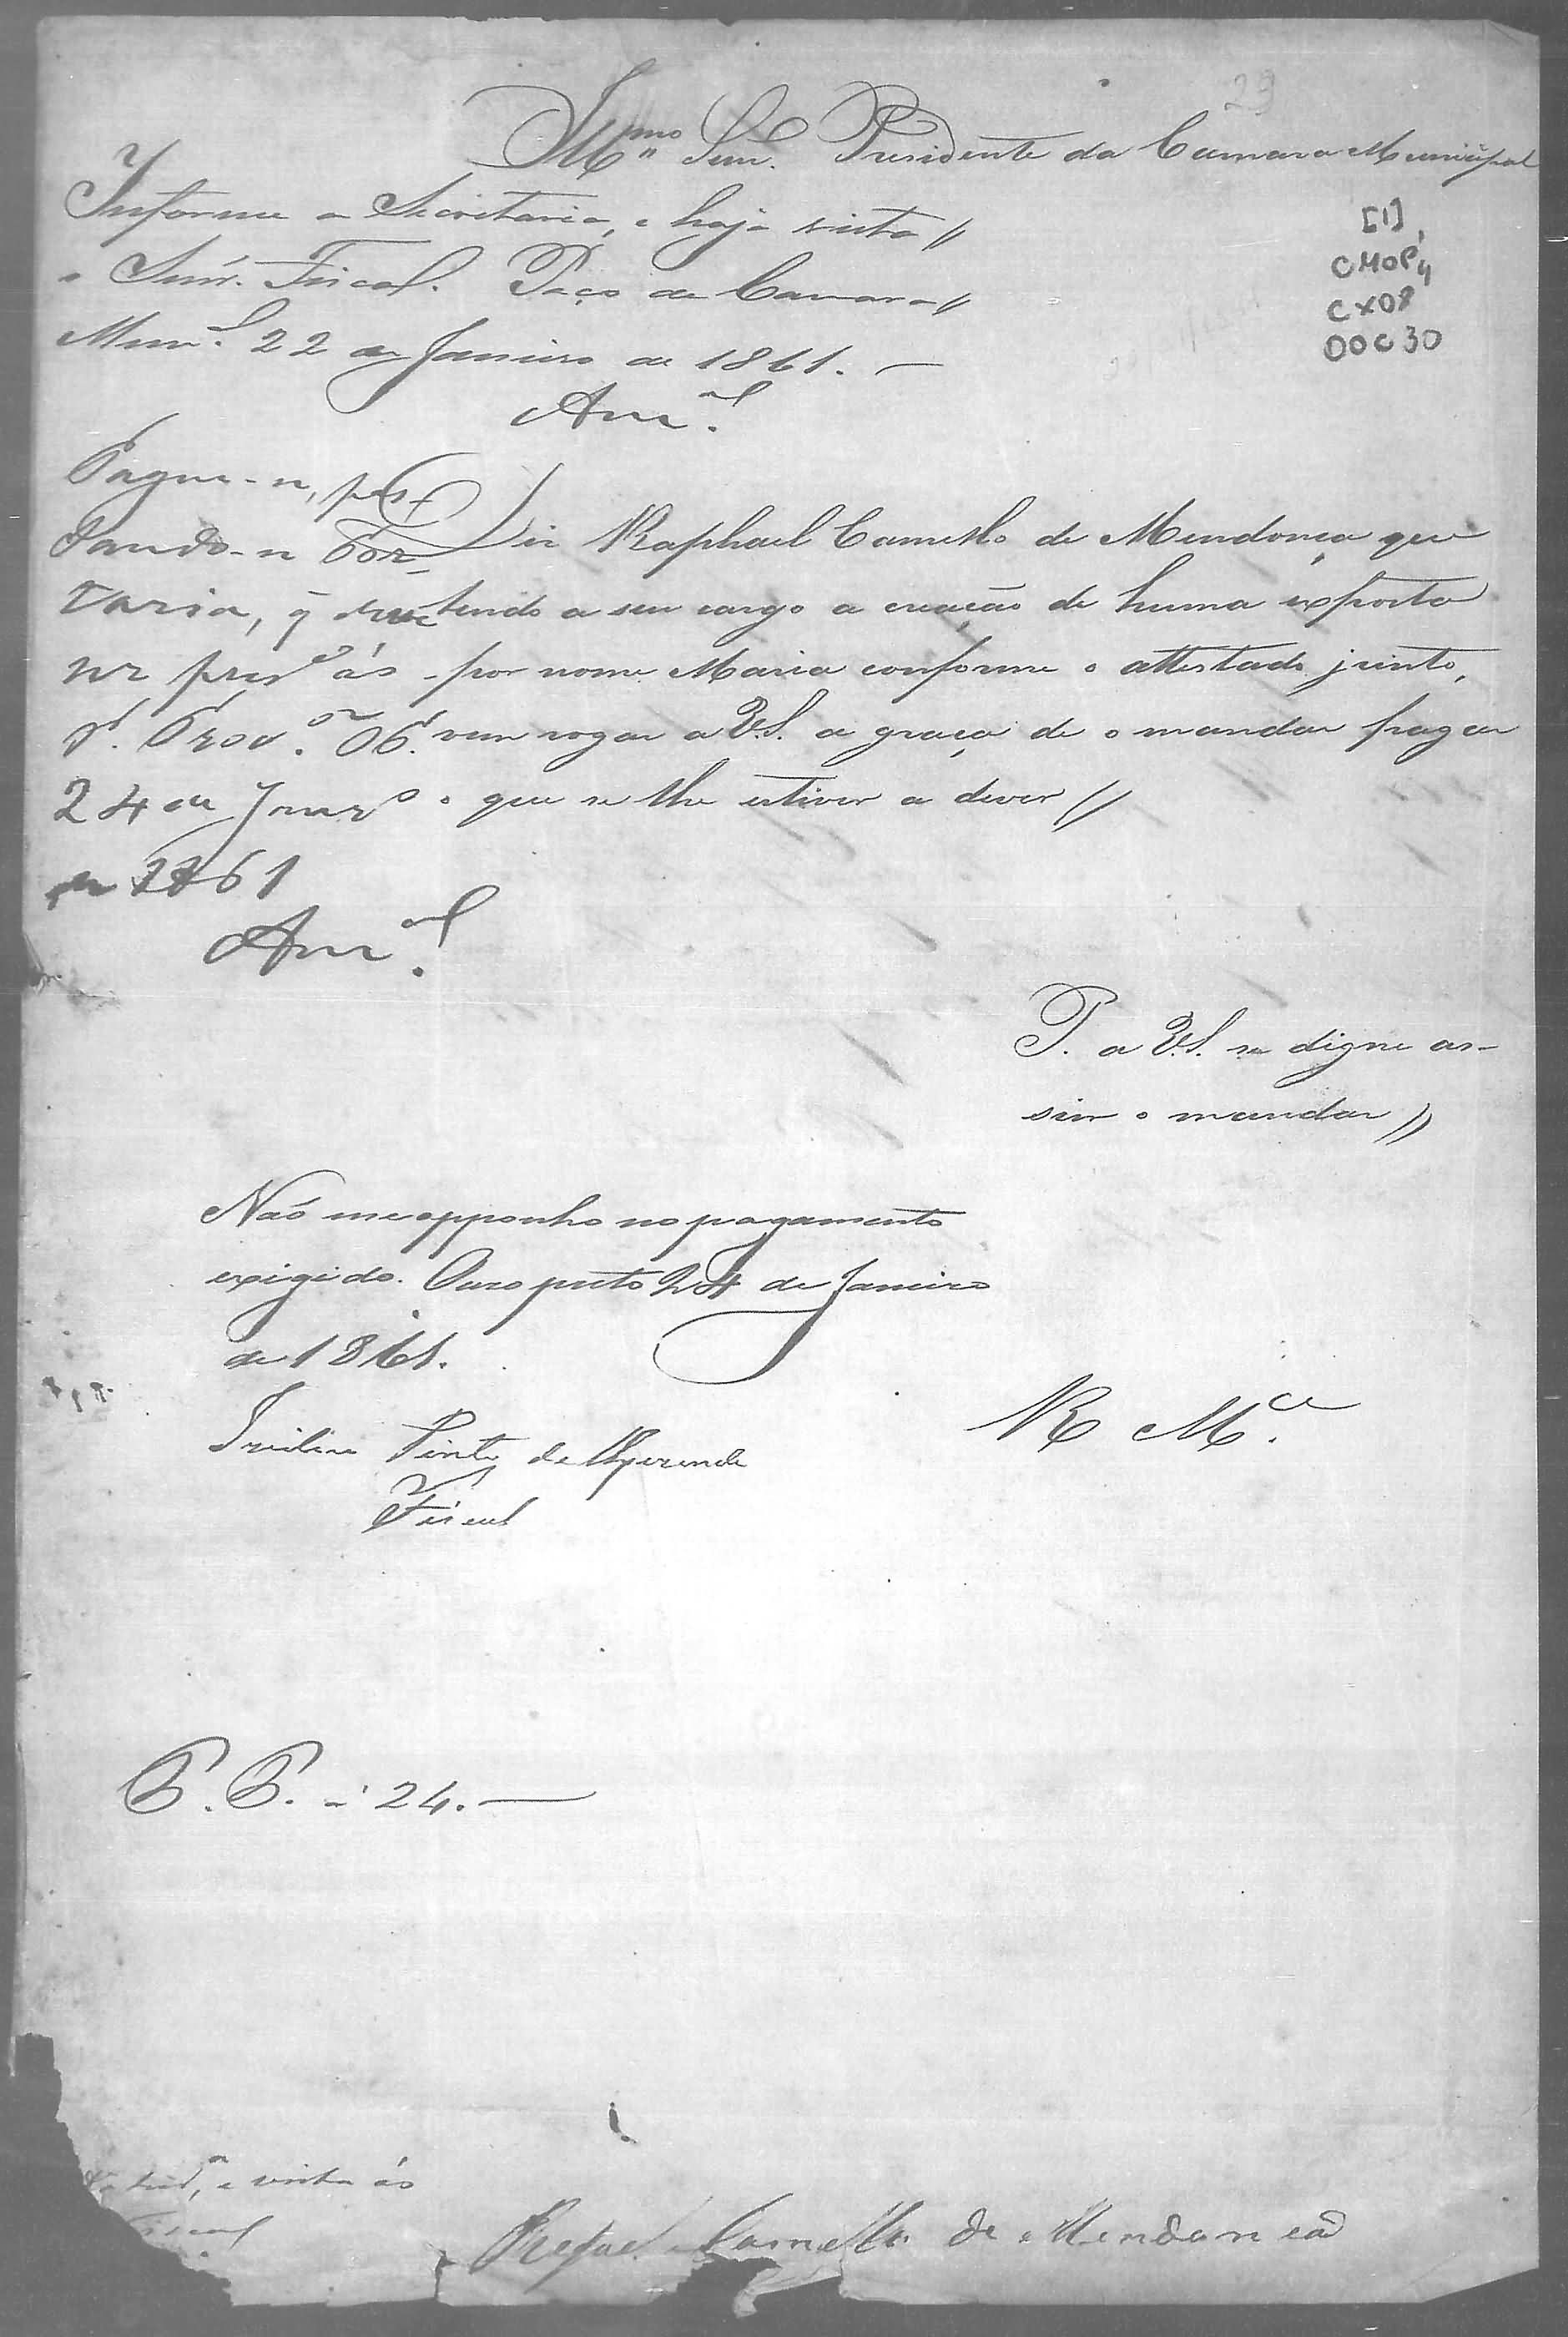 29
Illmo Snr. Presidente da Camara Municipal
Informe a Secretaria, e haja vista
o Snr. Fiscal. Paço da Camara
Munal. 22 de Janeiro de 1861.
Amal.
[1]
CMOP
CX08
DOC 30
Pague-se, pas-
sando-se Por-
taria, q
24 de Janro
de 1861
Amal.
Diz Raphael Camello de Mendonça que
tendo a seu cargo a creação de huma exposta
por nome Maria conforme o attestado junto,
vem rogar a V.S. a graça de o mandar pagar
o que se lhe estiver a dever
P. a V.S. se digne as-
sim o mandar
Naõ me opponho no pagamento
exigido. Ouro preto 24 de Janeiro
de 1861.
Pinto de
Fiscal
R Mce.
P. P. - 24.
e vista ao
Fiscal
Rafael Camello de Mendonca